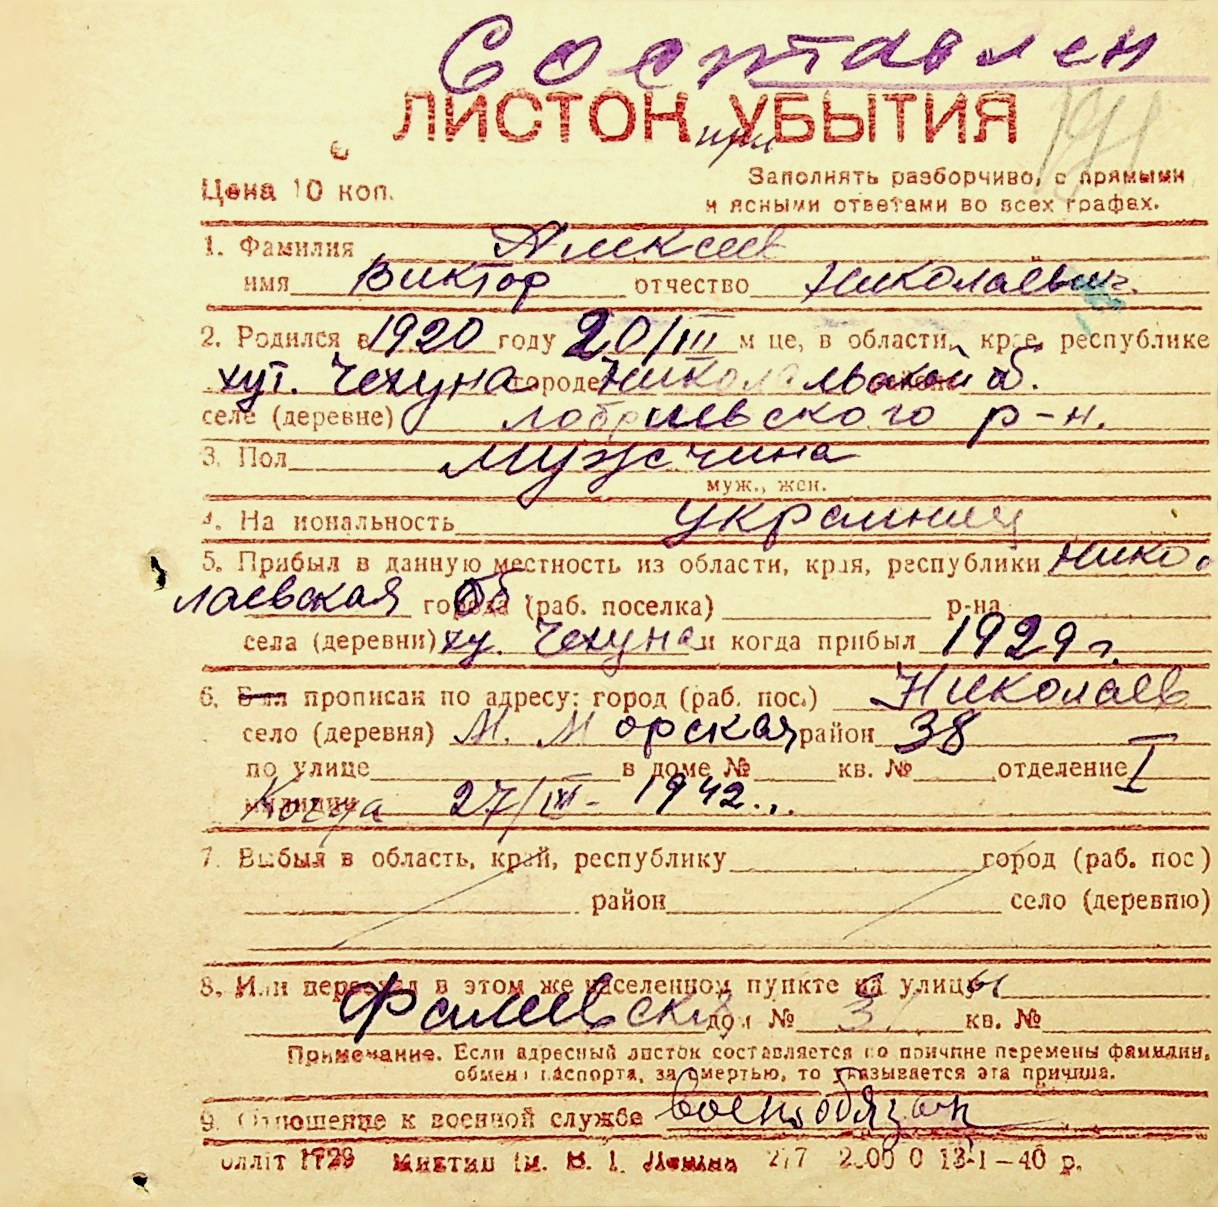 Составлен
ЛИСТОК УБЫТИЯ
при
Цена 10 коп.
Заполнять разборчиво, с прямыми
и ясными ответами во всех графах.
1. Фамилия Алексеев
имя Виктор отчество Николаевич
2. Родился в 1920 году 20/III м це, в области, крае, республике
хут. Чехуна городе Николаевской об.
селе (деревне) р-н.
3. Пол Мужчина
муж., жен.
4. Национальность украинец
5. Прибыл в данную местность из области, края, республики Нико
лаевская об города (раб. поселка) р-на
села (деревни) ху. Чехуна и когда прибыл 1929 г.
6. Был прописан по адресу: город (раб. пос.) Николаев
село (деревня) М. Морская район 38
по улице в доме № кв. № отделение I
милиции Когда 27/III - 1942
7. Выбыл в область, край, республику город (раб. пос)
район село (деревню)
8. Или переехал в этом же населенном пункте на улицы
дом № кв. №
Примечание. Если адресный листок составляется по причине перемены фамилии,
обмена паспорта, за смертью, то указывается эта причина.
9. Отношение к военной службе военнобязан
Облліт 1729 Миктип Ім. В. І. Леніна 13-I-40 р.